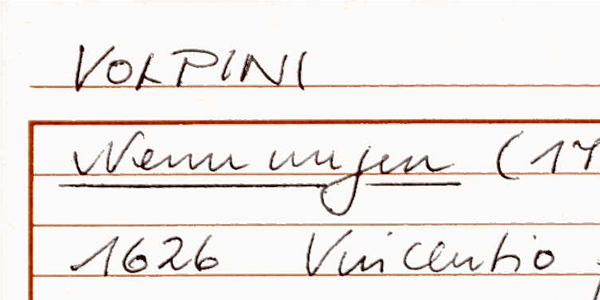 VOLPINI
Nennungen (17
1626 Vincentio